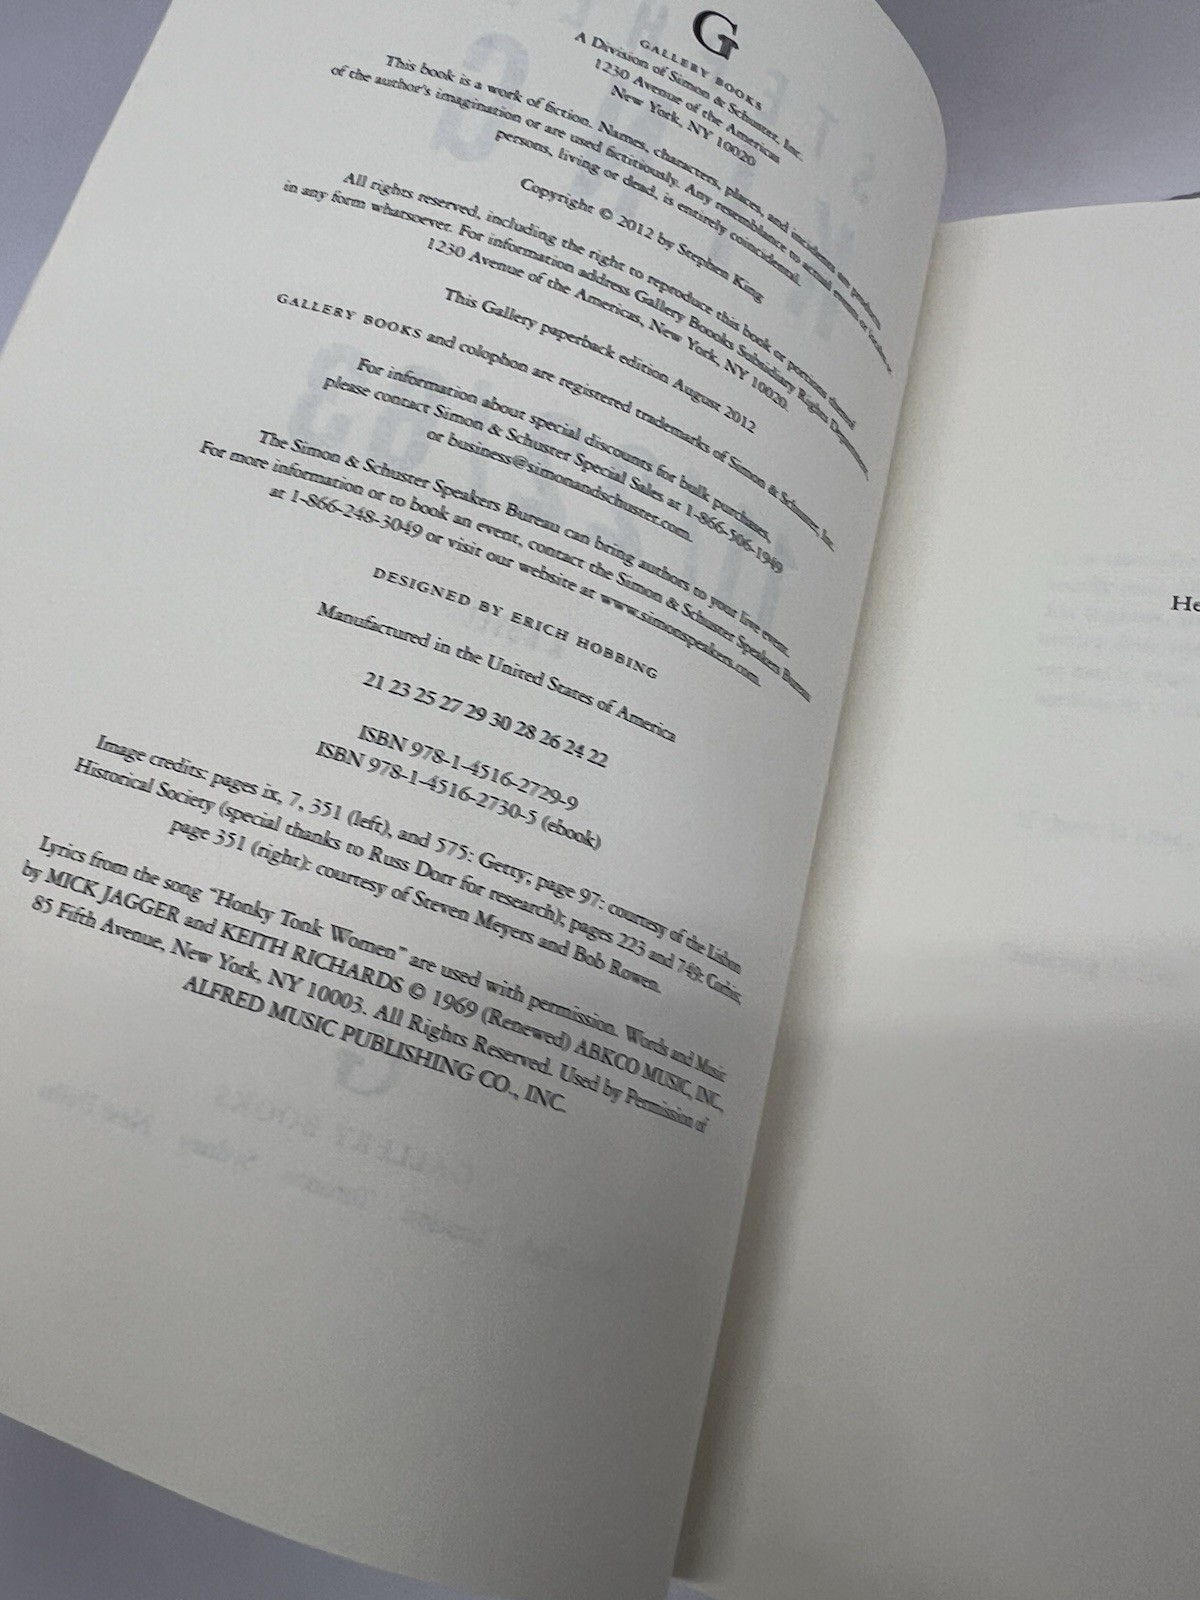 G
GALLERY BOOKS
A Division of Simon & Schuster, Inc.
1230 Avenue of the Americas
New York, NY 10020
This book is a work of fiction. Names, characters, places, and incidents are products
of the author's imagination or are used fictitiously. Any resemblance to actual events or locales or
persons, living or dead, is entirely coincidental.
Copyright © 2012 by Stephen King
All rights reserved, including the right to reproduce this book or portions thereof
in any form whatsoever. For information address Gallery Boooks Subsidiary Rights Department,
1230 Avenue of the Americas, New York, NY 10020.
This Gallery paperback edition August 2012
GALLERY BOOKS and colophon are registered trademarks of Simon & Schuster, Inc.
For information about special discounts for bulk purchases,
please contact Simon & Schuster Special Sales at 1-866-506-1949
or business@simonandschuster.com.
The Simon & Schuster Speakers Bureau can bring authors to your live event.
For more information or to book an event, contact the Simon & Schuster Speakers Bureau
at 1-866-248-3049 or visit our website at www.simonspeakers.com.
DESIGNED BY ERICH HOBBING
Manufactured in the United States of America
21 23 25 27 29 30 28 26 24 22
ISBN 978-1-4516-2729-9
ISBN 978-1-4516-2730-5 (ebook)
Image credits: pages ix, 7, 351 (left), and 575: Getty; page 97: courtesy of the Lisbon
Historical Society (special thanks to Russ Dorr for research); pages 223 and 749: Corbis;
page 351 (right): courtesy of Steven Meyers and Bob Rowen.
Lyrics from the song "Honky Tonk Women" are used with permission. Words and Music
by MICK JAGGER and KEITH RICHARDS © 1969 (Renewed) ABKCO MUSIC, INC.,
85 Fifth Avenue, New York, NY 10003. All Rights Reserved. Used by Permission of
ALFRED MUSIC PUBLISHING CO., INC.
He